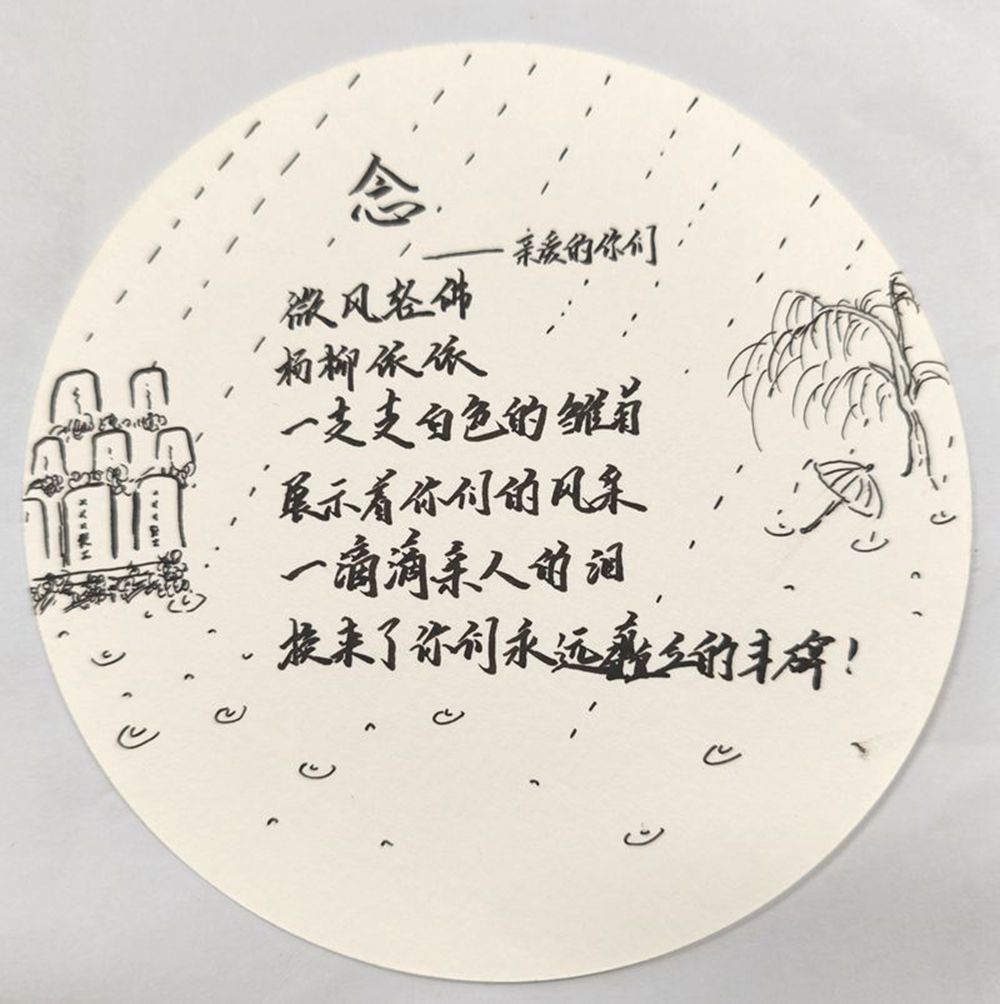 念
——亲爱的你们
微风轻佛
杨柳依依
一支支白色的雏菊
展示着你们的风采
一滴滴亲人的泪
换来了你们永远矗立的丰碑！